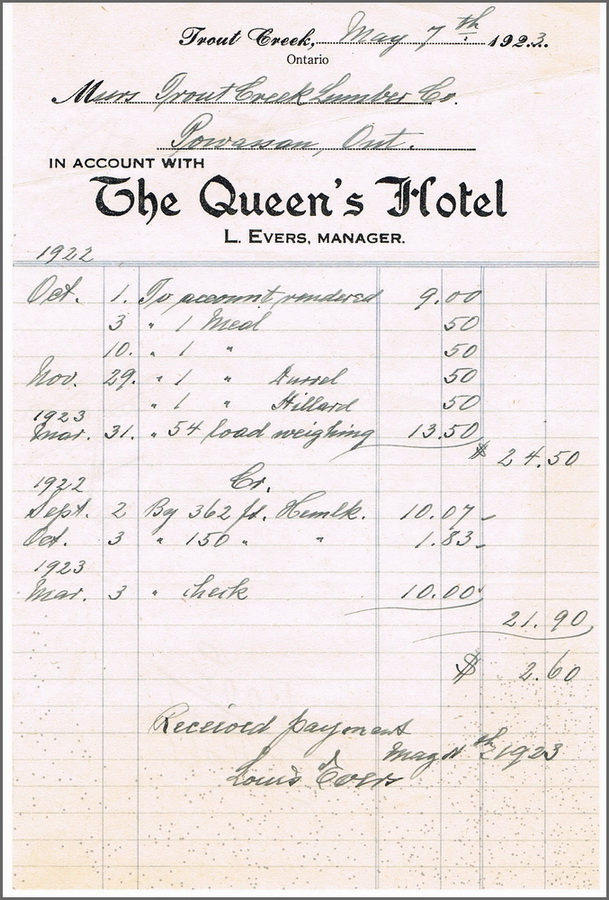 Trout Creek, May 7th 1923.
Ontario
Messrs Trout Creek Lumber Co.
Powassan, Ont.
IN ACCOUNT WITH
The Queen's Hotel
L. EVERS, MANAGER.
1922
Oct. 1. To account rendered 9.00
3 " 1 Meal 50
10. " 1 " 50
Nov. 29. " 1 " 50
" 1 " Hillard 50
1923
Mar. 31. " 54 load weighing 13.50
$ 24.50
1922 Cr.
Sept. 2 By 362 ft. Hemlk. 10.07
Oct. 3 " 150 " " 1.83
1923
Mar. 3 " check 10.00
21.90
$ 2.60
Received payment
May 11th 1923
Louis Evers